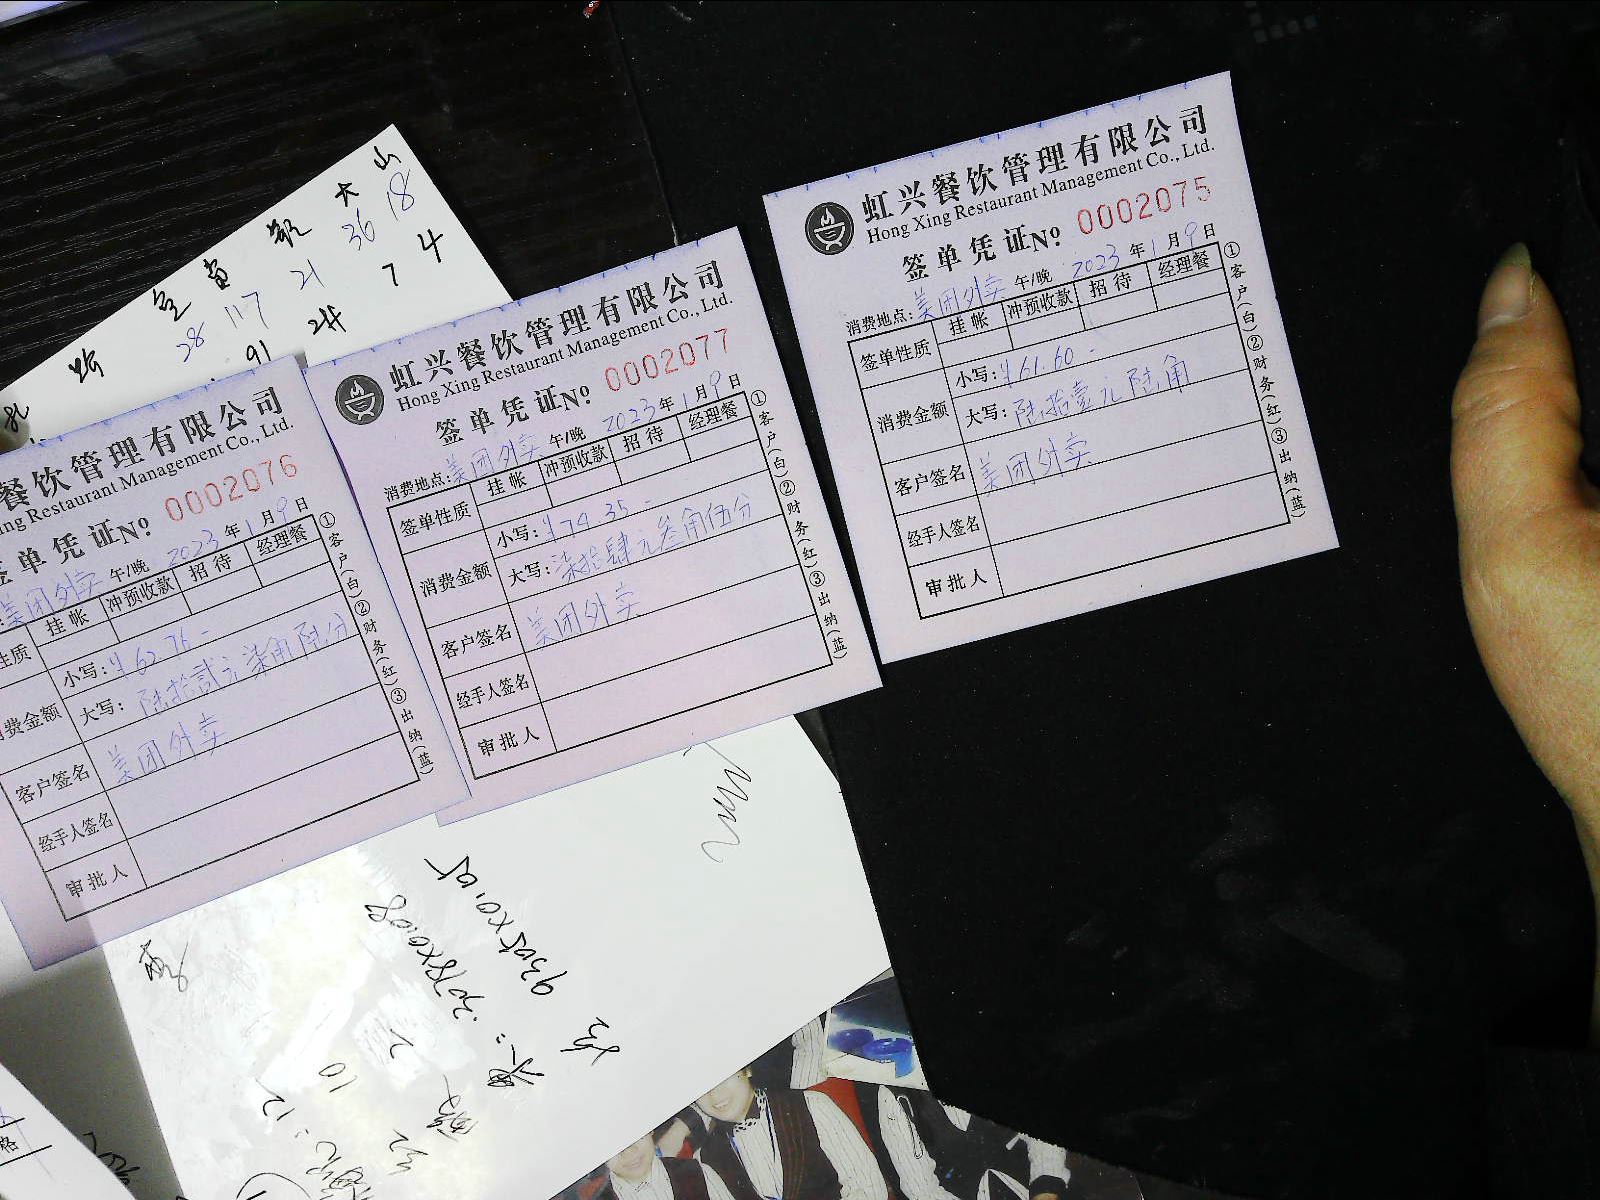 虹兴餐饮管理有限公司
Hong Xing Restaurant Management Co., Ltd.
签单凭证№ 0002075
消费地点:美团外卖 午/晚 2023年1月9日
签单性质 挂帐 冲预收款 招待 经理餐
消费金额 小写:¥61.60-
大写:陆拾壹元陆角
客户签名 美团外卖
经手人签名
审批人
①客户(白)②财务(红)③出纳(蓝)
虹兴餐饮管理有限公司
Hong Xing Restaurant Management Co., Ltd.
签单凭证№ 0002077
消费地点:美团外卖 午/晚 2023年1月9日
签单性质 挂帐 冲预收款 招待 经理餐
消费金额 小写:¥74.35-
大写:柒拾肆元叁角伍分
客户签名 美团外卖
经手人签名
审批人
①客户(白)②财务(红)③出纳(蓝)
餐饮管理有限公司
ing Restaurant Management Co., Ltd.
签单凭证№ 0002076
美团外卖 午/晚 2023年1月9日
性质 挂帐 冲预收款 招待 经理餐
消费金额 小写:¥62.76-
大写:陆拾贰元柒角陆分
客户签名 美团外卖
经手人签名
审批人
①客户(白)②财务(红)③出纳(蓝)
大 山
28 117 21 36 18
91 24 7 4
10
12
格